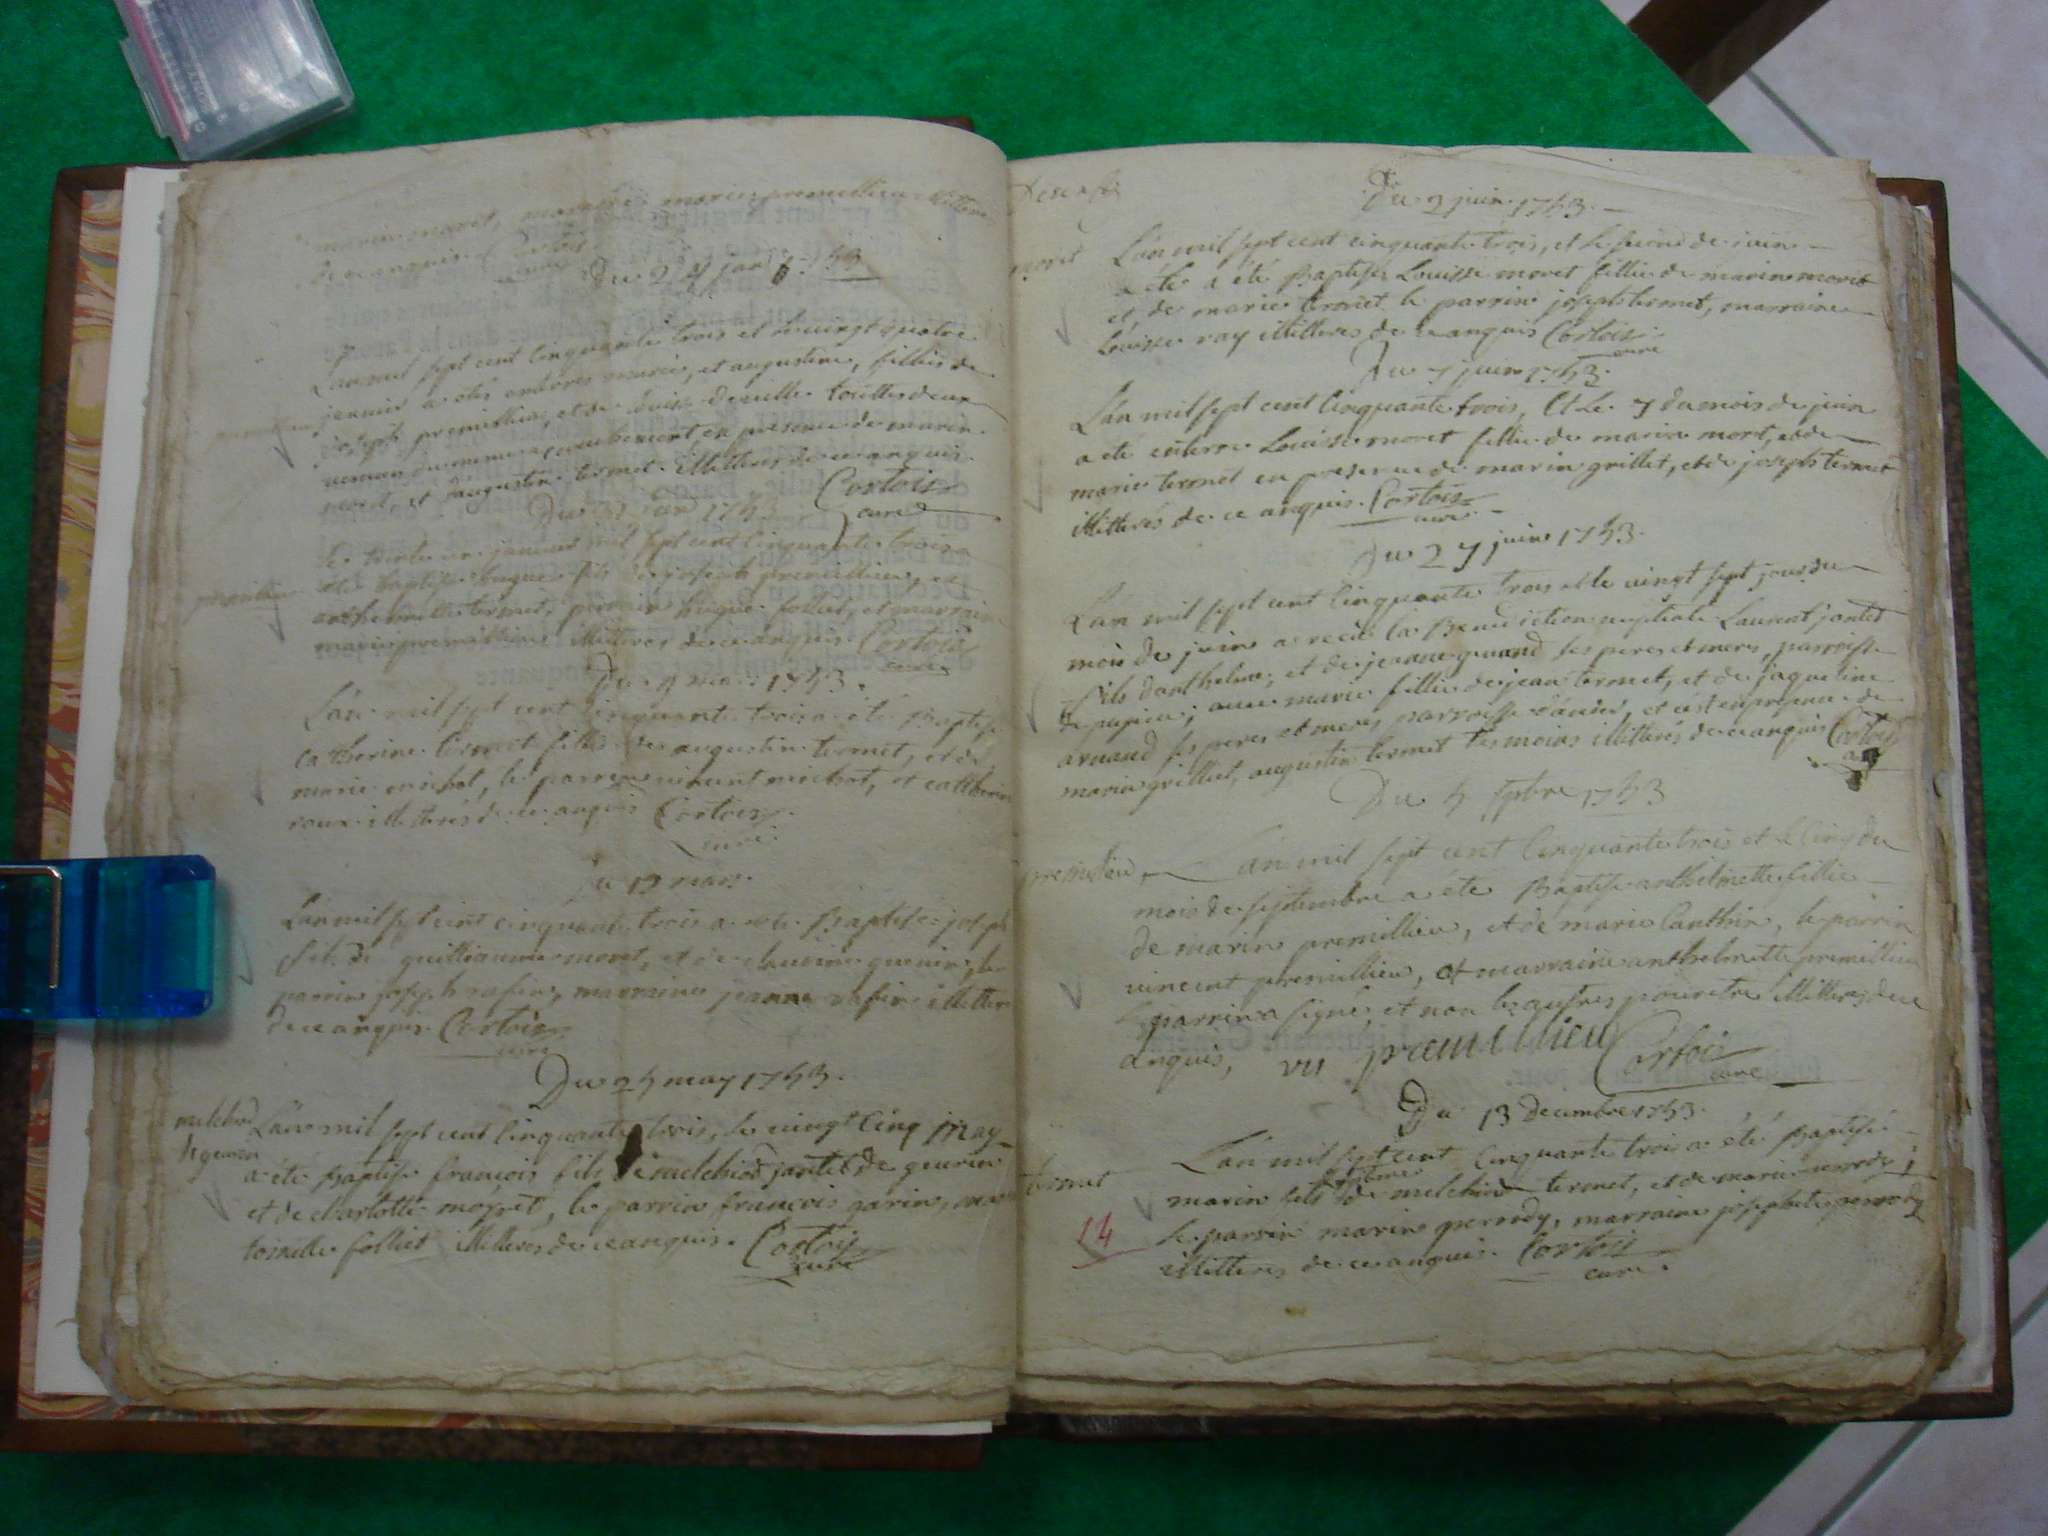 marin moret, marraine marie premillieu illiteres
de ce anquis Cortois
curé
Du 24 janv 1753
L'an mil sept cent cinquante trois et le vingt quatre
janvier a étés enterés marie, et augustine, fillies de
joseph premillieu, et de
accouchement en presence de marin
moret, et d'augustin termet illitteres de ce anquis
Cortois
curé
Du 31 janv 1753
premillieu
Le trente un janvier mil sept cent cinquante trois a
été Baptisé hugue fils de joseph premillieu, et
anthelmette termet, parrain hugue folliet, et marraine
marie premillieu illitteres de ce anquis Cortois
curé
Du 4 mars 1753.
L'an mil sept cent cinquante trois a été Baptisé
catherine termet fillie de augustin termet, et de
marie michot, le parrein vincent michot, et catherine
roux illitterés de ce anquis Cortois
curé
Du 19 mars
L'an mil sept cent cinquante trois a été Baptisé joseph
fils de guilliaume moret, et de claudine guerin, le
parrin joseph rafin, marraine jeanne rafin illittere
de ce anquis Cortois
curé
Du 25 may 1753.
melchiod
de guerin
L'an mil sept cent cinquante trois, le vingt cinq may
a été Baptisé francois fils de melchiod jantet de guerin
et de charlotte moret, le parrin francois garin,
toinette folliet illitterés de ce anquis. Cortois
curé
Du 2 juin 1753.
moret
L'an mil sept cent cinquante trois, et le second de juin
a été a été Baptisé Louisse moret fillie de marin moret
et de marie termet le parrin joseph termet, marraine
Louisse ray illitteres de ce anquis Cortois
curé
Du 7 juin 1753.
L'an mil sept cent cinquante trois, et le 7 du mois de juin
a été enterré Louisse moret fillie de marin moret, et de
marie termet en presence de marin grillet, et de joseph termet
illitterés de ce anquis. Cortois
curé
Du 27 juin 1753.
L'an mil sept cent cinquante trois et le vingt sept jour du
mois de juin a reçu la Benediction nuptiale Laurent jantet
fils d'anthelme, et de jeanne ses peres et meres, parroisse
de pugieu, avec marie fillie de jean termet, et de jaqueline
arnaud ses peres et meres parroisse et c'est en presence de
marin grilliet, augustin termet temoins illitterés de ce anquis Cortois
curé
Du 5 7bre 1753
premillieu
L'an mil sept cent cinquante trois et le cinq du
mois de septembre a été Baptisé anthelmette fillie
de marin premillieu, et de marie Cauthin, le parrin
vincent premillieu, et marraine anthelmette premillieu
le parrin a signé, et non les autres pour etre illitteres de ce
anquis, vu premillieu Cortois
curé
Du 13 decembre 1753.
termet
L'an mil sept cent cinquante trois a été Baptisé
marin fils de melchiod termet, et de marie perrody;
le parrin marin perrody, marraine josephte perrody
illitteres de ce anquis. Cortois
curé.
14